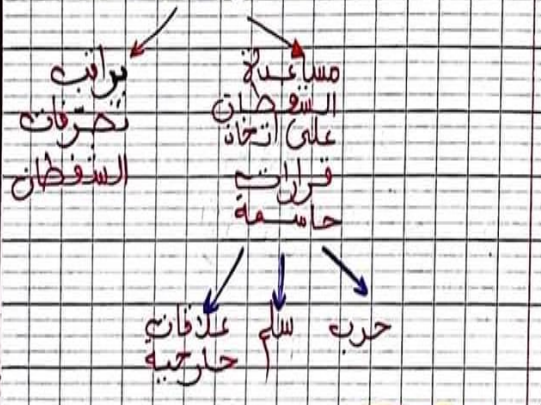 مساعدة
السفطان
على اتخاذ
قرارات
حاسمة
يراقب
تصرّفات
السفطان
حرب
سلم
علاقات
خارجية